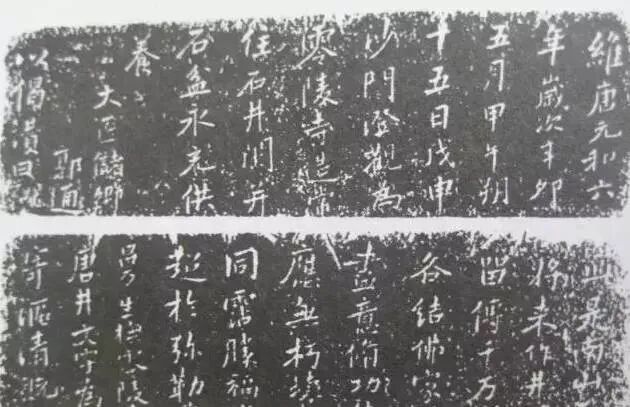 維唐元和六
年歲次辛卯
五月甲午朔
十五日戊申
沙門澄觀為
零陵寺造常
住石井闌并
石盆永充供
養
大匠儲卿
郭通
以偈讚曰
此是南山
將來作井
留傳千万
各結佛家
盡意修功
應無朽壞
同霑勝福
超於弥勒
零陵
唐井文字
寄漚清玩